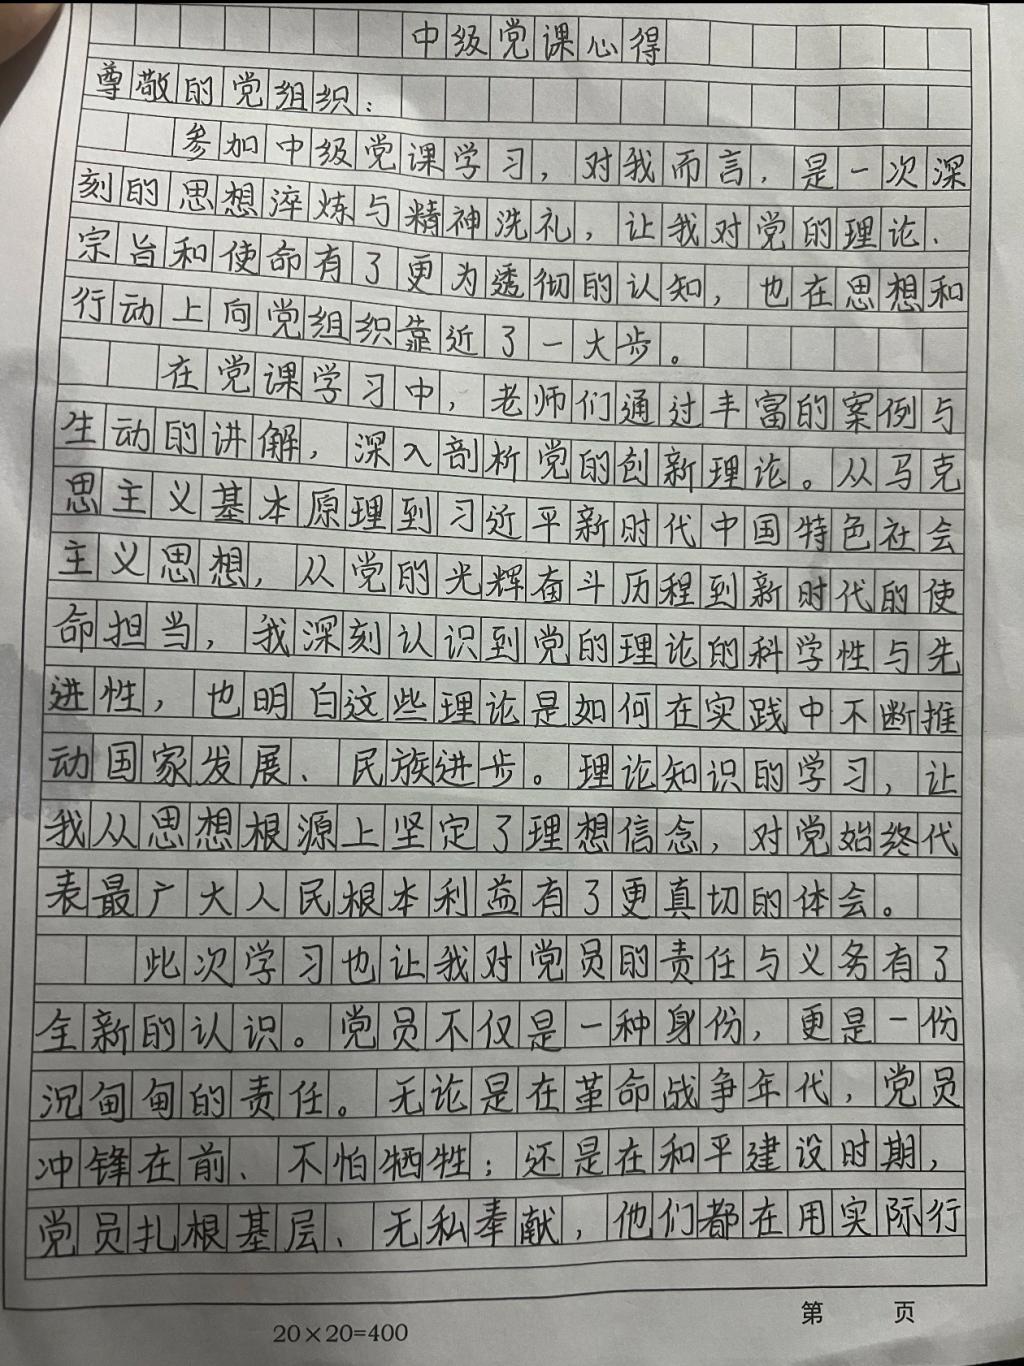 中级党课心得
尊敬的党组织：
参加中级党课学习，对我而言，是一次深
刻的思想淬炼与精神洗礼，让我对党的理论、
宗旨和使命有了更为透彻的认知，也在思想和
行动上向党组织靠近了一大步。
在党课学习中，老师们通过丰富的案例与
生动的讲解，深入剖析党的创新理论。从马克
思主义基本原理到习近平新时代中国特色社会
主义思想，从党的光辉奋斗历程到新时代的使
命担当，我深刻认识到党的理论的科学性与先
进性，也明白这些理论是如何在实践中不断推
动国家发展、民族进步。理论知识的学习，让
我从思想根源上坚定了理想信念，对党始终代
表最广大人民根本利益有了更真切的体会。
此次学习也让我对党员的责任与义务有了
全新的认识。党员不仅是一种身份，更是一份
沉甸甸的责任。无论是在革命战争年代，党员
冲锋在前、不怕牺牲；还是在和平建设时期，
党员扎根基层、无私奉献，他们都在用实际行
第 页
20×20=400